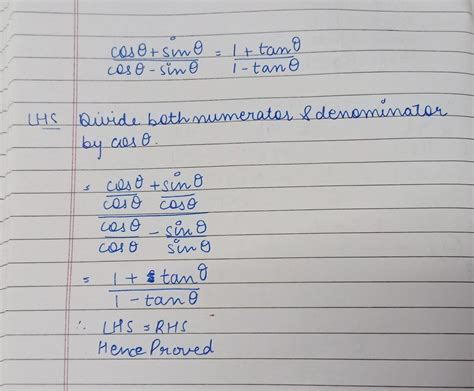 cosθ + sinθ / cosθ - sinθ = 1 + tanθ / 1 - tanθ
LHS Divide both numerator & denominator
by cosθ.
= cosθ / cosθ + sinθ / cosθ
cosθ / cosθ - sinθ / sinθ
= 1 + tanθ / 1 - tanθ
∴ LHS = RHS
Hence Proved